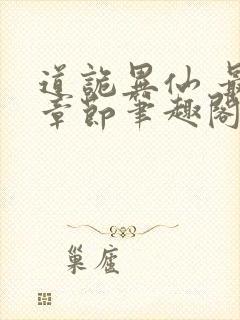 道詭異仙 最
章節筆趣閣
巢廬